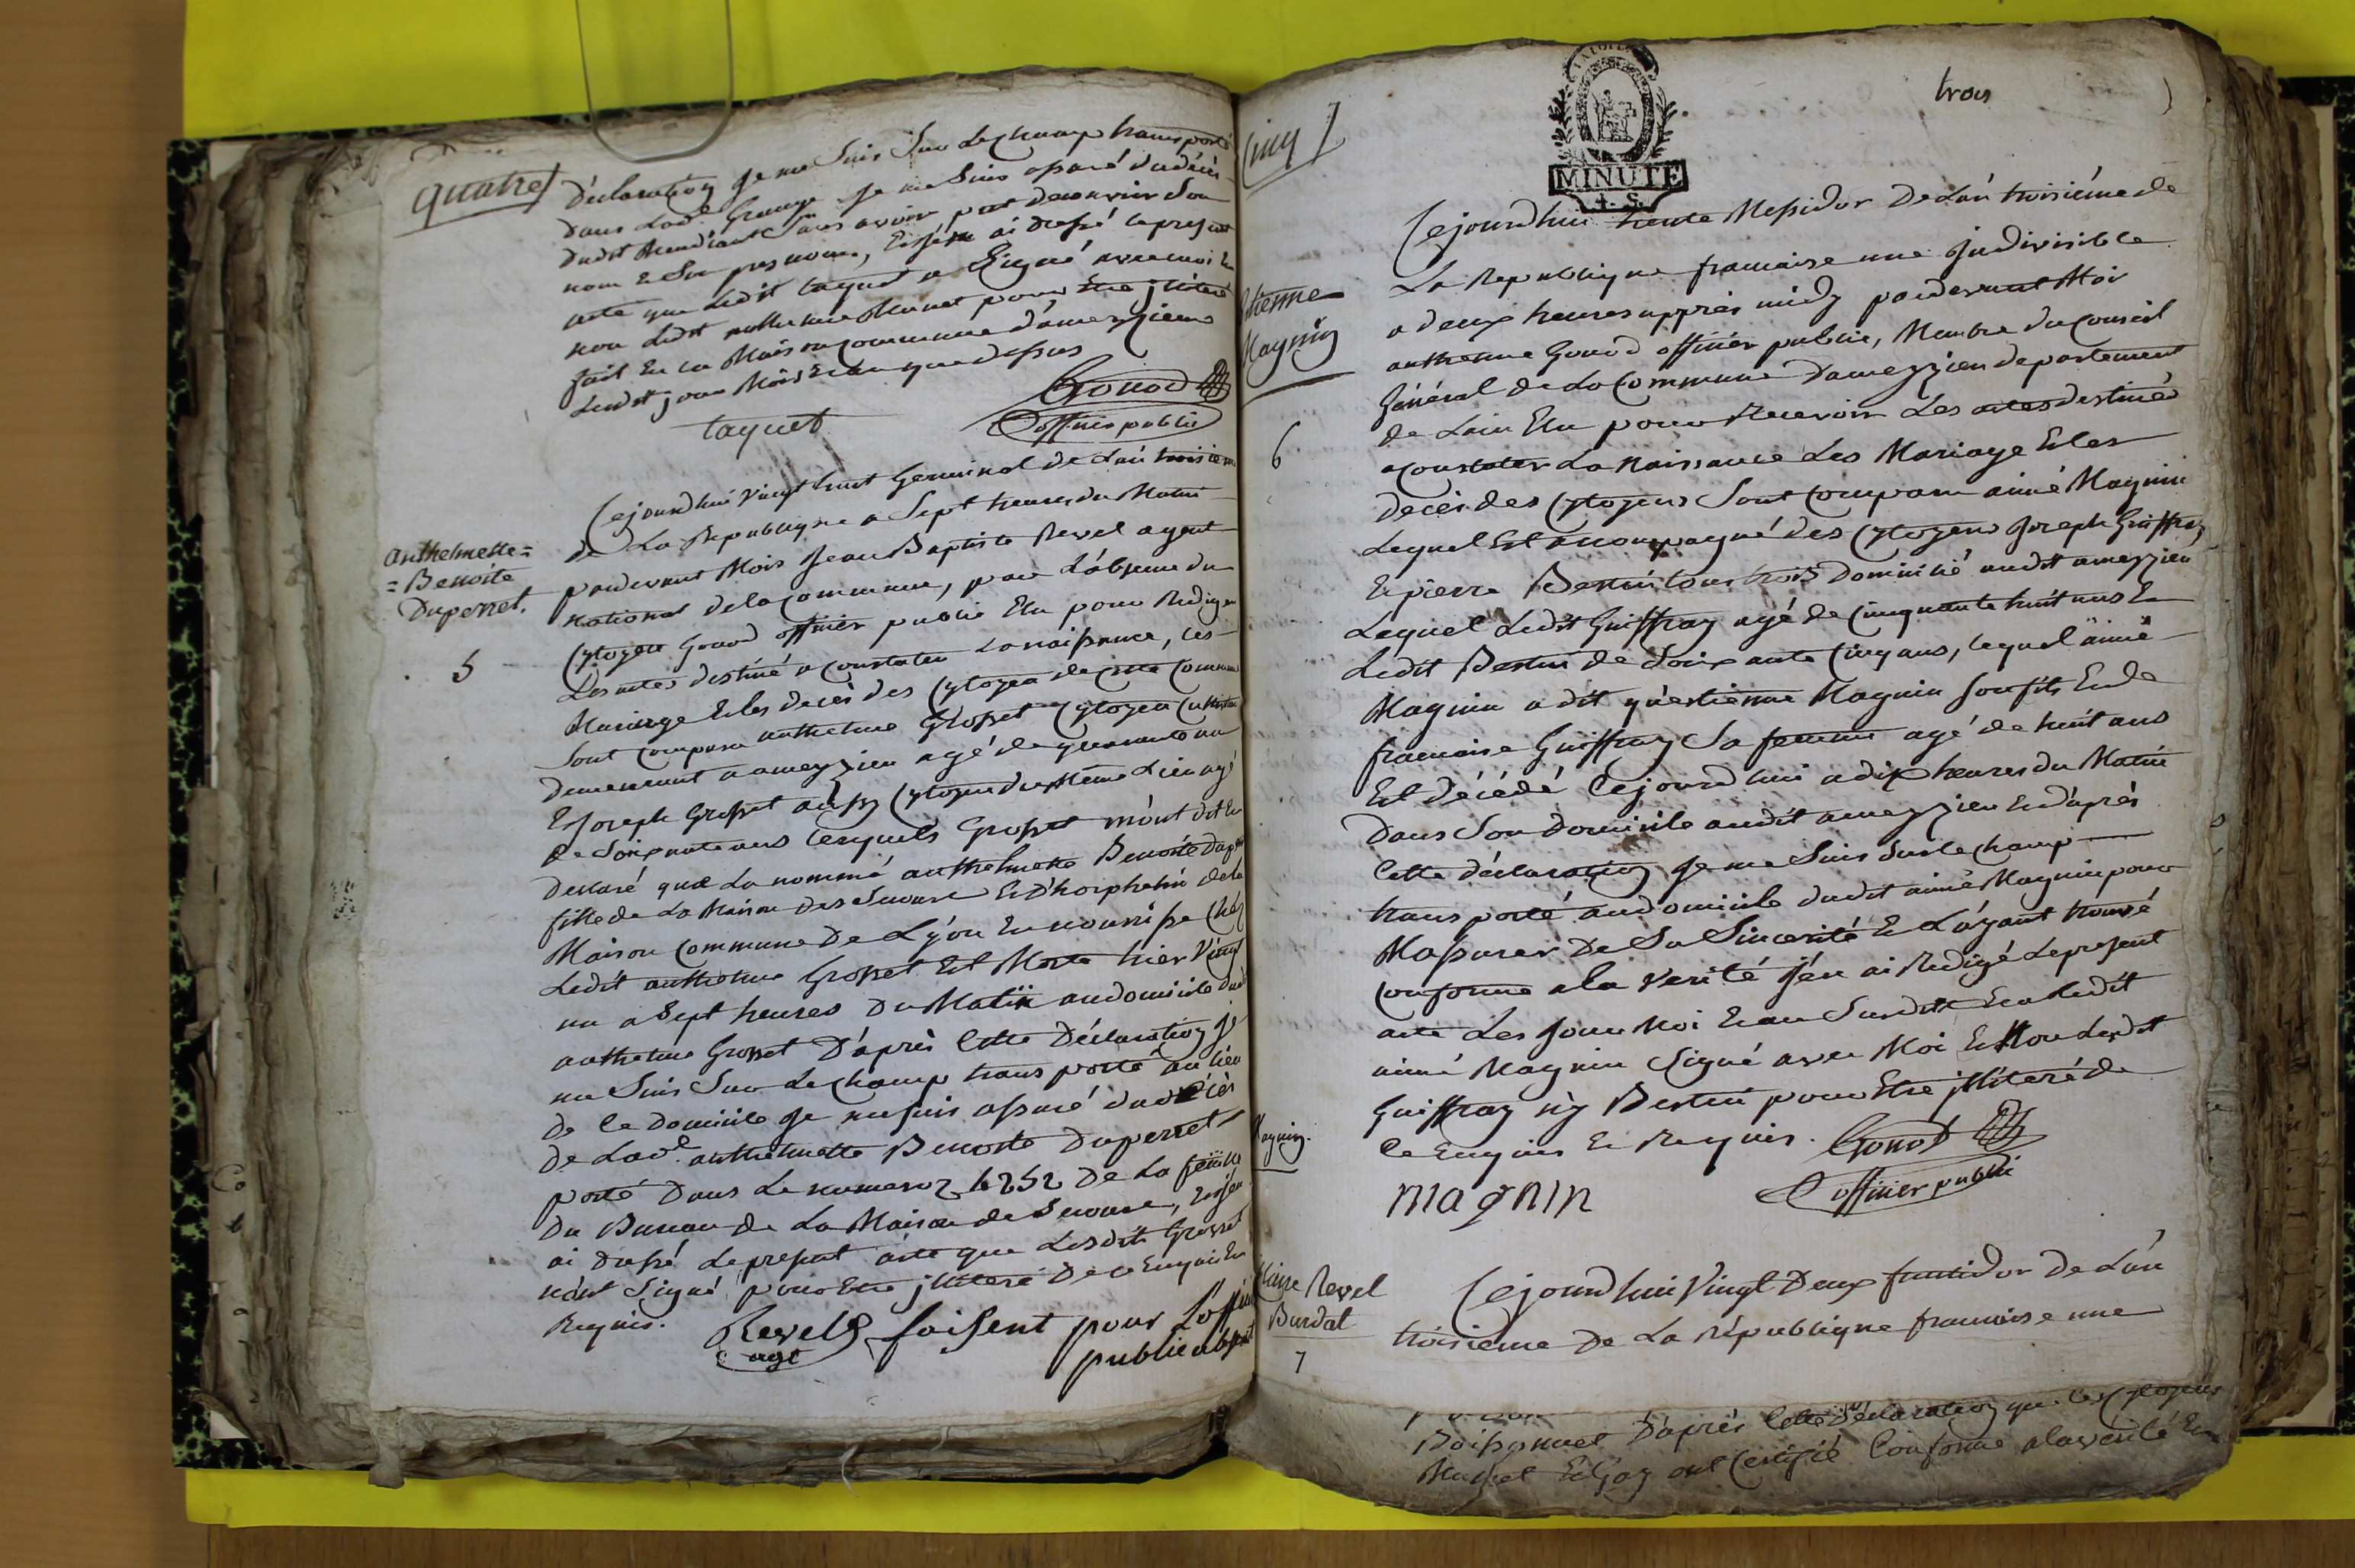 quatre
Déclaration je me suis sur le champ transporté
dans lade Grange je me suis assuré du décès
dudit mendiant sans avoir put decouvrir son
nom et son presnoms, et j'en ai dressé le present
acte que ledit taquet a signé avec moi et
non ledit anthelme Munet pour être jlliteré
fait en la Maison commune d'ameyzieu
lesdit jour Mois et an que dessus
Gonod
officier public
taquet
Anthelmette =
= Benoite
Duperret.
5
Cejourdhui vingt huit Germinal de L'an troisieme
de La Republique a Sept heures du Matin
pardevant Mois Jean Baptiste Revel agent
national de la commune, pour L'absence du
Cytoyen Gonod officier public Elu pour Rediger
Les actes destiné a constater La naissance, Les
Mariage et les décès des Cytoyen de cette commune
sont comparu anthelme Grosset Cytoyen Cultivateur
demeurant a ameyzieu agé de quarante un
Et joseph Grosset aussy Cytoyen du Même Lieu agé
de soixante ans lesquels Grosset m'ont dit et
declaré que La nommé anthelmette Benoite Duperret
fille de La Maison des secours et d'horphelin de la
Maison commune De Lyon en nourrisse chez
Ledit anthelme Grosset Est Morte hier vingt
un a Sept heures du Matin au domicile dudit
anthelme Grosset D'après Cette Déclaration je
me suis sur Le champ transporté au lieu
de le domicile je me suis assuré du décès
de Lade anthelmette Benoite Duperret
porté dans Le numero de La feuille
du Bureau de La Maison de secours, et j'en
ai dressé le present acte que Lesdits Grosset
n'ont signé pour être jlliteré de ce Enquis et
Requis.
Revel
agt
faisent pour L'officier
public absent
Cinq
trois
MINUTE
4. S.
Etienne
Magnin
6
Cejourdhui trente Messidor De L'an troisiéme de
La Republique francaise une jndivisible
a deux heures apprès midy pardevant Moi
anthelme Gonod officier public, Membre du conseil
Général de La Commune Dameyzieu departement
de Lain Elu pour Recevoir Les actes destinés
a constater La Naissance Les Mariage Et les
Décès des Cytoyens sont comparu aimé Magnin
Lequel Est accompagné des Cytoyens joseph Guiffray
Et pierre Bertin tous trois Domicilié audit ameyzieu
Lequel Ledit Guiffray agé de Cinquante huit ans Et
Ledit Bertin de soixante Cinq ans, lequel aimé
Magnin a dit qu'estienne Magnin son fils Et de
francaise Guiffray sa femme agé de huit ans
Est Décédé Cejourd'hui a dix heures du Matin
Dans son domicile audit ameyzieu Et d'après
Cette déclaration je me suis sur le champ
transporté au domicile dudit aimé Magnin pour
M'assurer De La sincerité Et L'ayant trouvé
conforme a la verité j'en ai Redigé Le present
acte Les jour Moi Et an susdit Et a Ledit
aimé Magnin signé avec Moi Et Non Lesdit
Guiffray n'y Bertin pour Etre jlliteré de
ce Enquis Et Requis.
Gonod
officier public
Magnin.
magnin
Revel
Burdet
7
Cejourdhui Vingt Deux fructidor De L'an
troisieme De La République francaise une
D'après Cette déclaration que les Cytoyens
Et ont Certifié Conforme a la vérité Et